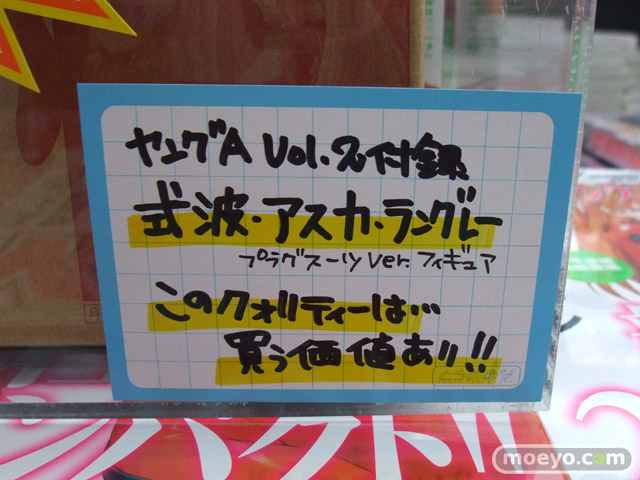 ヤングA Vol.2付録
式波・アスカ・ラングレー
プラグスーツVer.フィギュア
このクォリティーは…
買う価値あり!!
ンパクト!!
moeyo.com